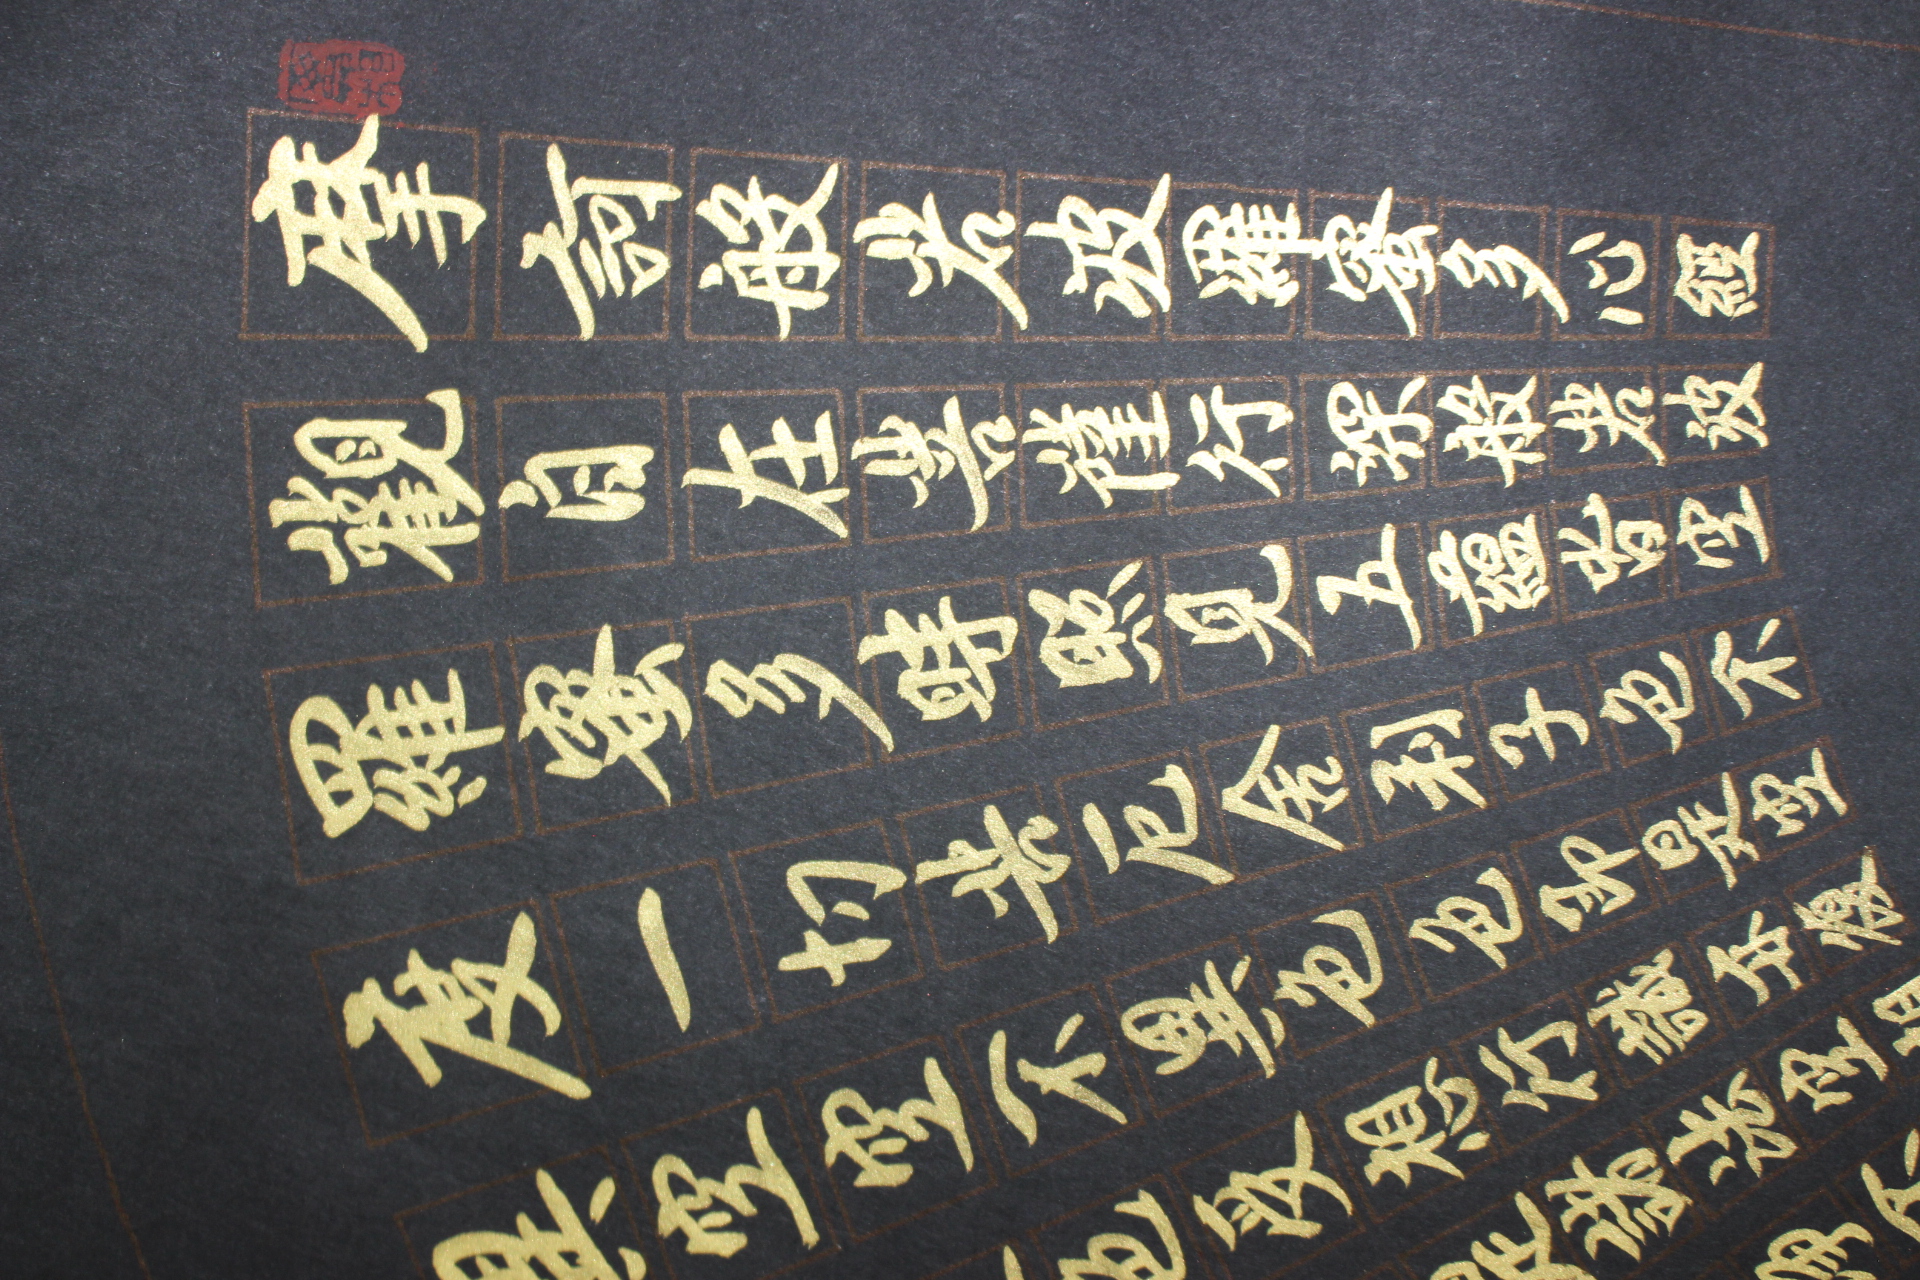 摩訶般若波羅蜜多心經
觀自在菩薩行深般若波
羅蜜多時照見五蘊皆空
度一切苦厄舍利子色不
異空空不異色色即是空
色受想行識亦復
是諸法空相